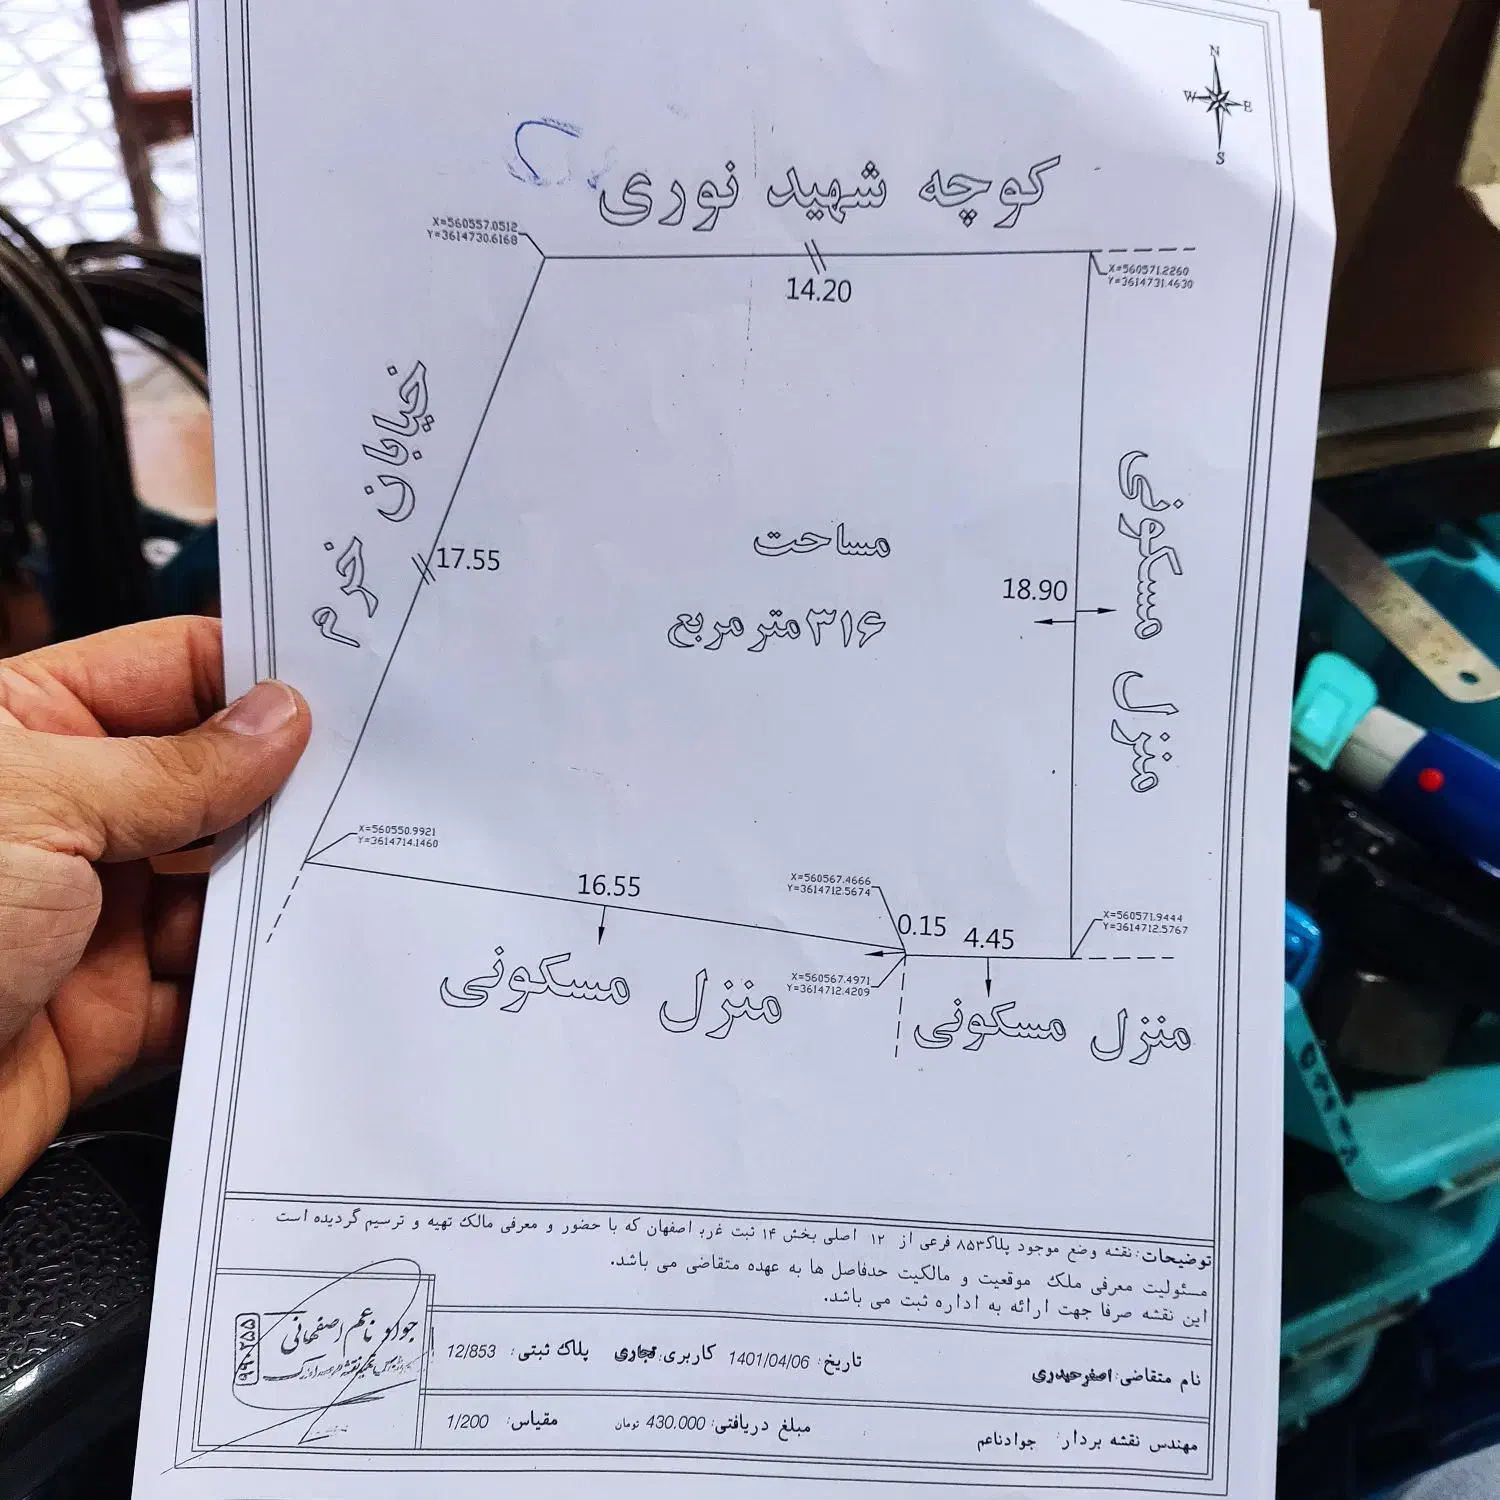 N
W E
S
کوچه شهید نوری
X=560557.0512
Y=3614730.6168
X=560571.2260
Y=3614731.4630
14.20
خیابان خرم
17.55
مساحت
۳۱۶ متر مربع
18.90
منزل مسکونی
X=560550.9921
Y=3614714.1460
16.55
X=560567.4666
Y=3614712.5674
0.15
4.45
X=560571.9444
Y=3614712.5767
X=560567.4971
Y=3614712.4209
منزل مسکونی
منزل مسکونی
توضیحات: نقشه وضع موجود پلاک۸۵۳ فرعی از ۱۲ اصلی بخش ۱۴ ثبت غرب اصفهان که با حضور و معرفی مالک تهیه و ترسیم گردیده است
مسئولیت معرفی ملک موقعیت و مالکیت حدفاصل ها به عهده متقاضی می باشد.
این نقشه صرفا جهت ارائه به اداره ثبت می باشد.
نام متقاضی: اصغرحیدری
تاریخ: 1401/04/06 کاربری: تجاری پلاک ثبتی: 12/853
مهندس نقشه بردار: جوادناعم
مبلغ دریافتی: 430.000 تومان مقیاس: 1/200
جواد ناعم اصفهانی